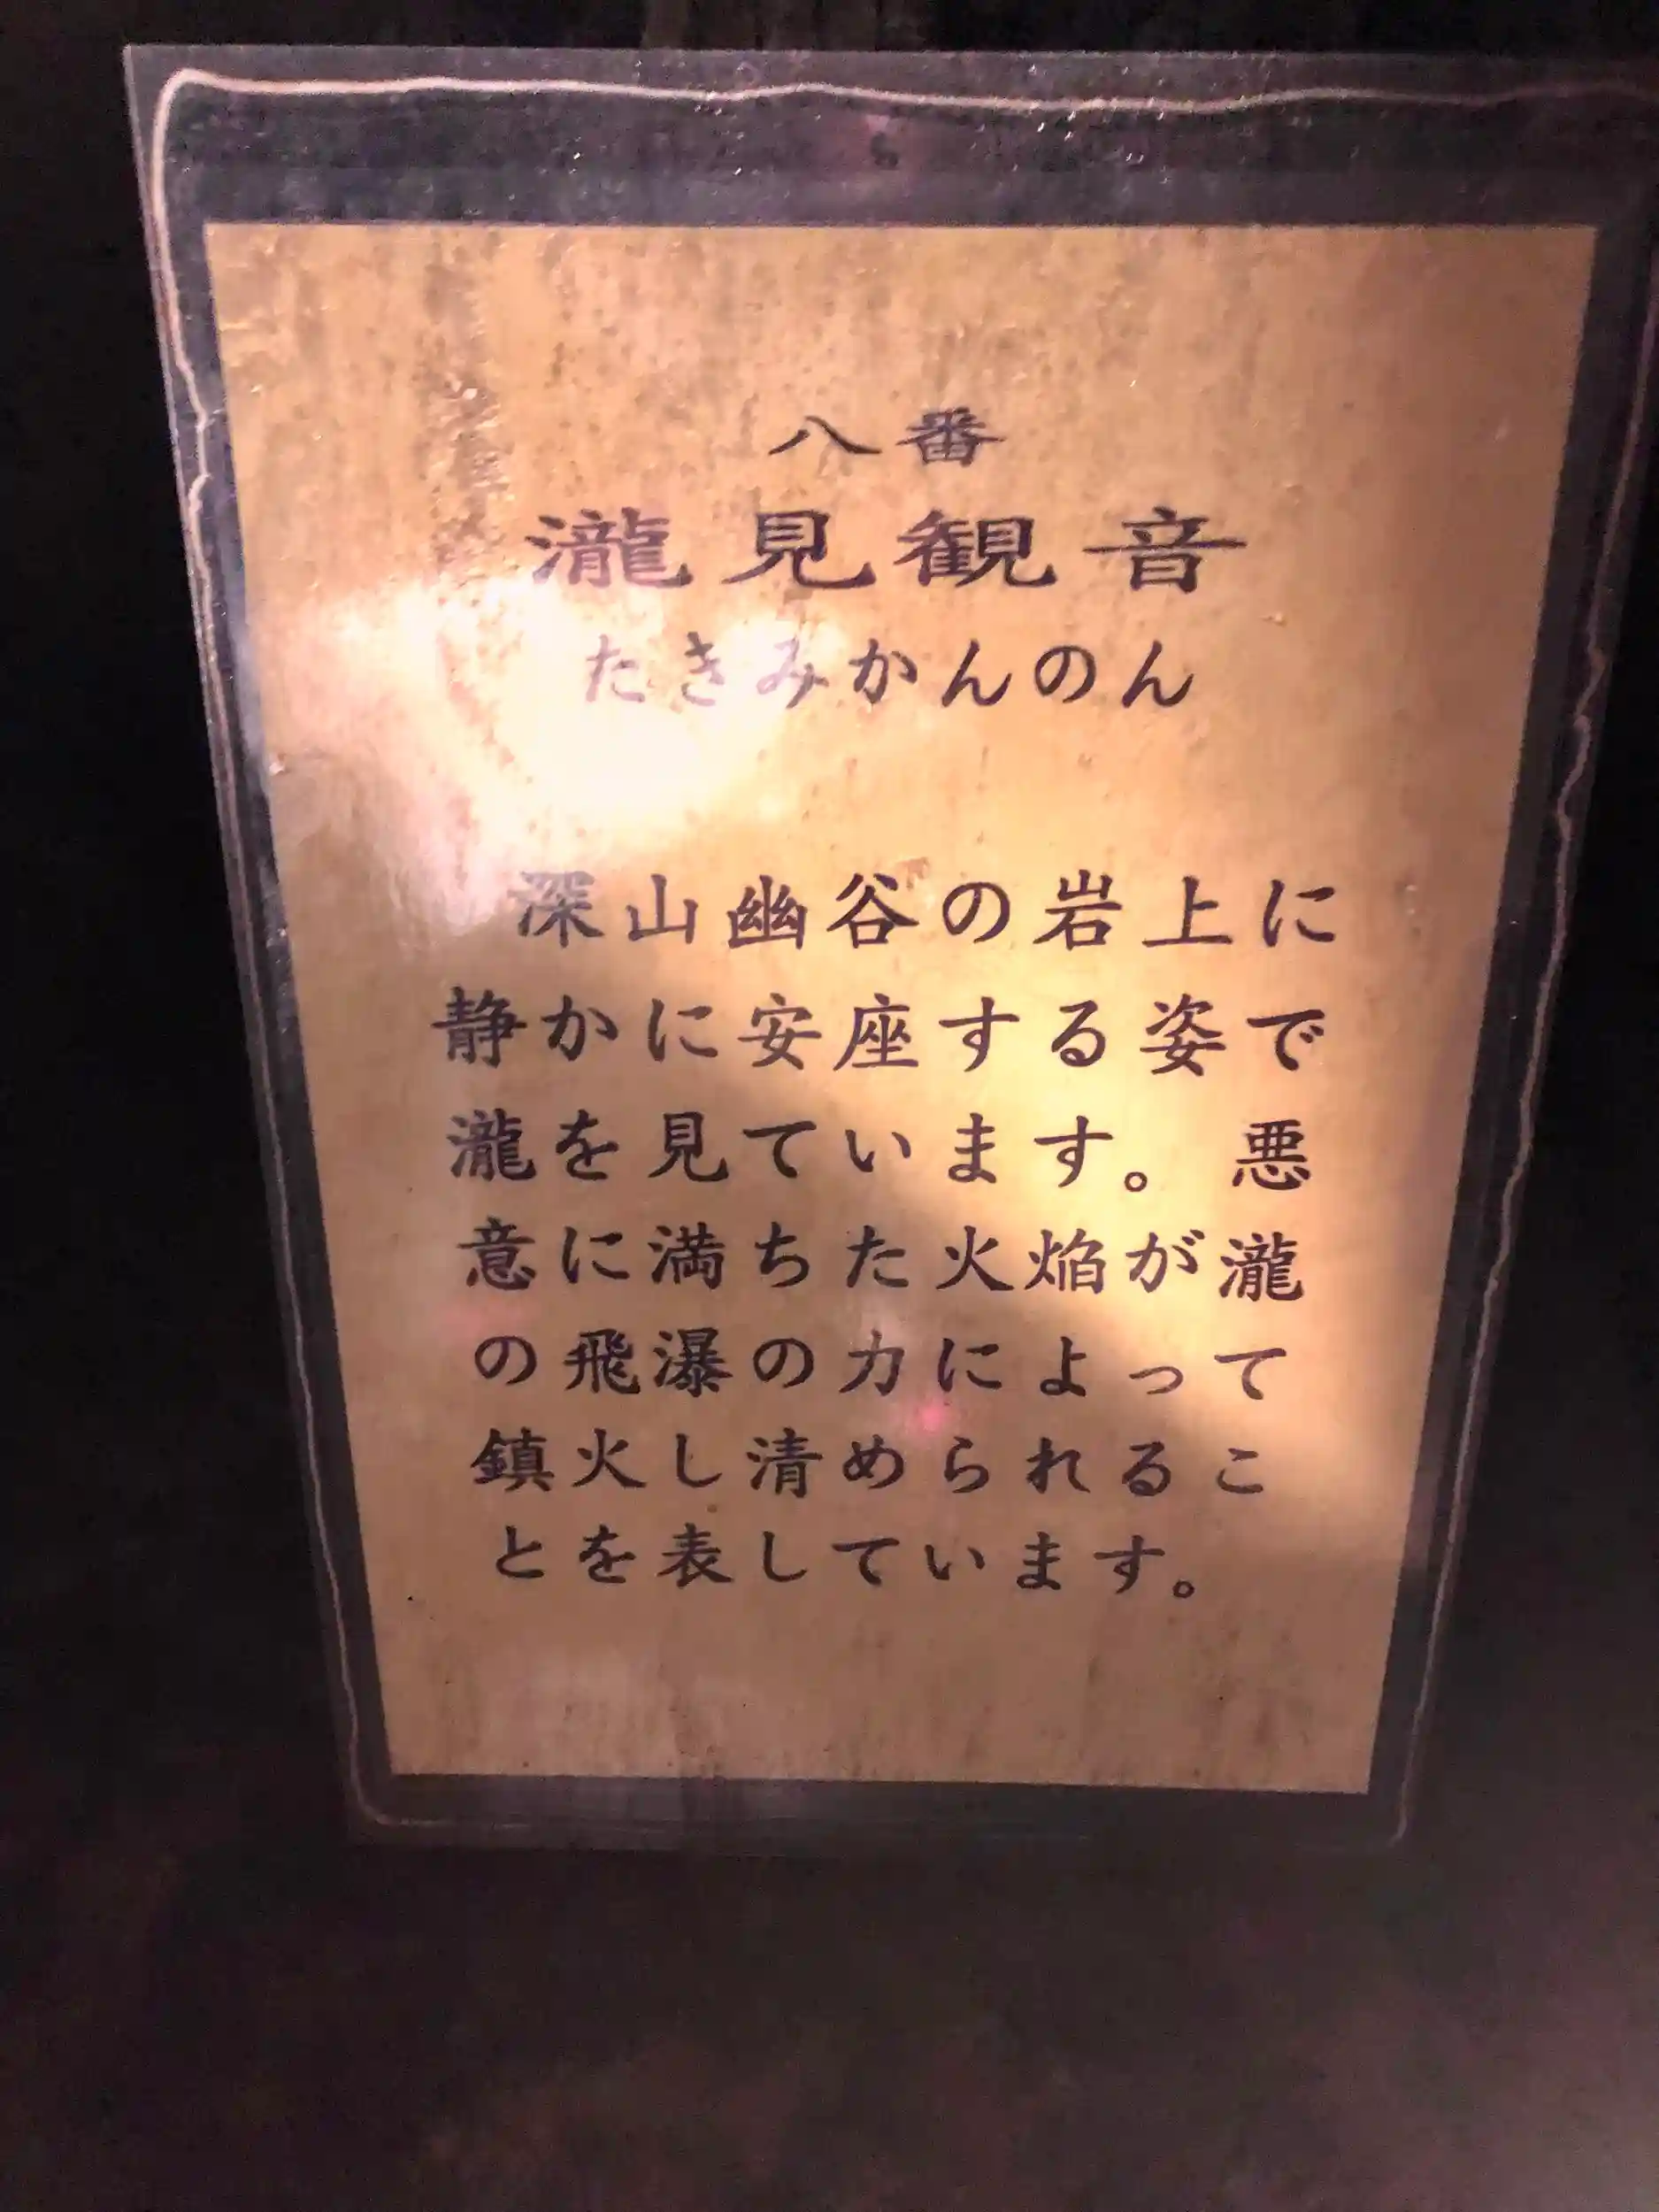 八番
瀧見観音
たきみかんのん
深山幽谷の岩上に
静かに安座する姿で
瀧を見ています。悪
意に満ちた火焔が瀧
の飛瀑の力によって
鎮火し清められるこ
とを表しています。